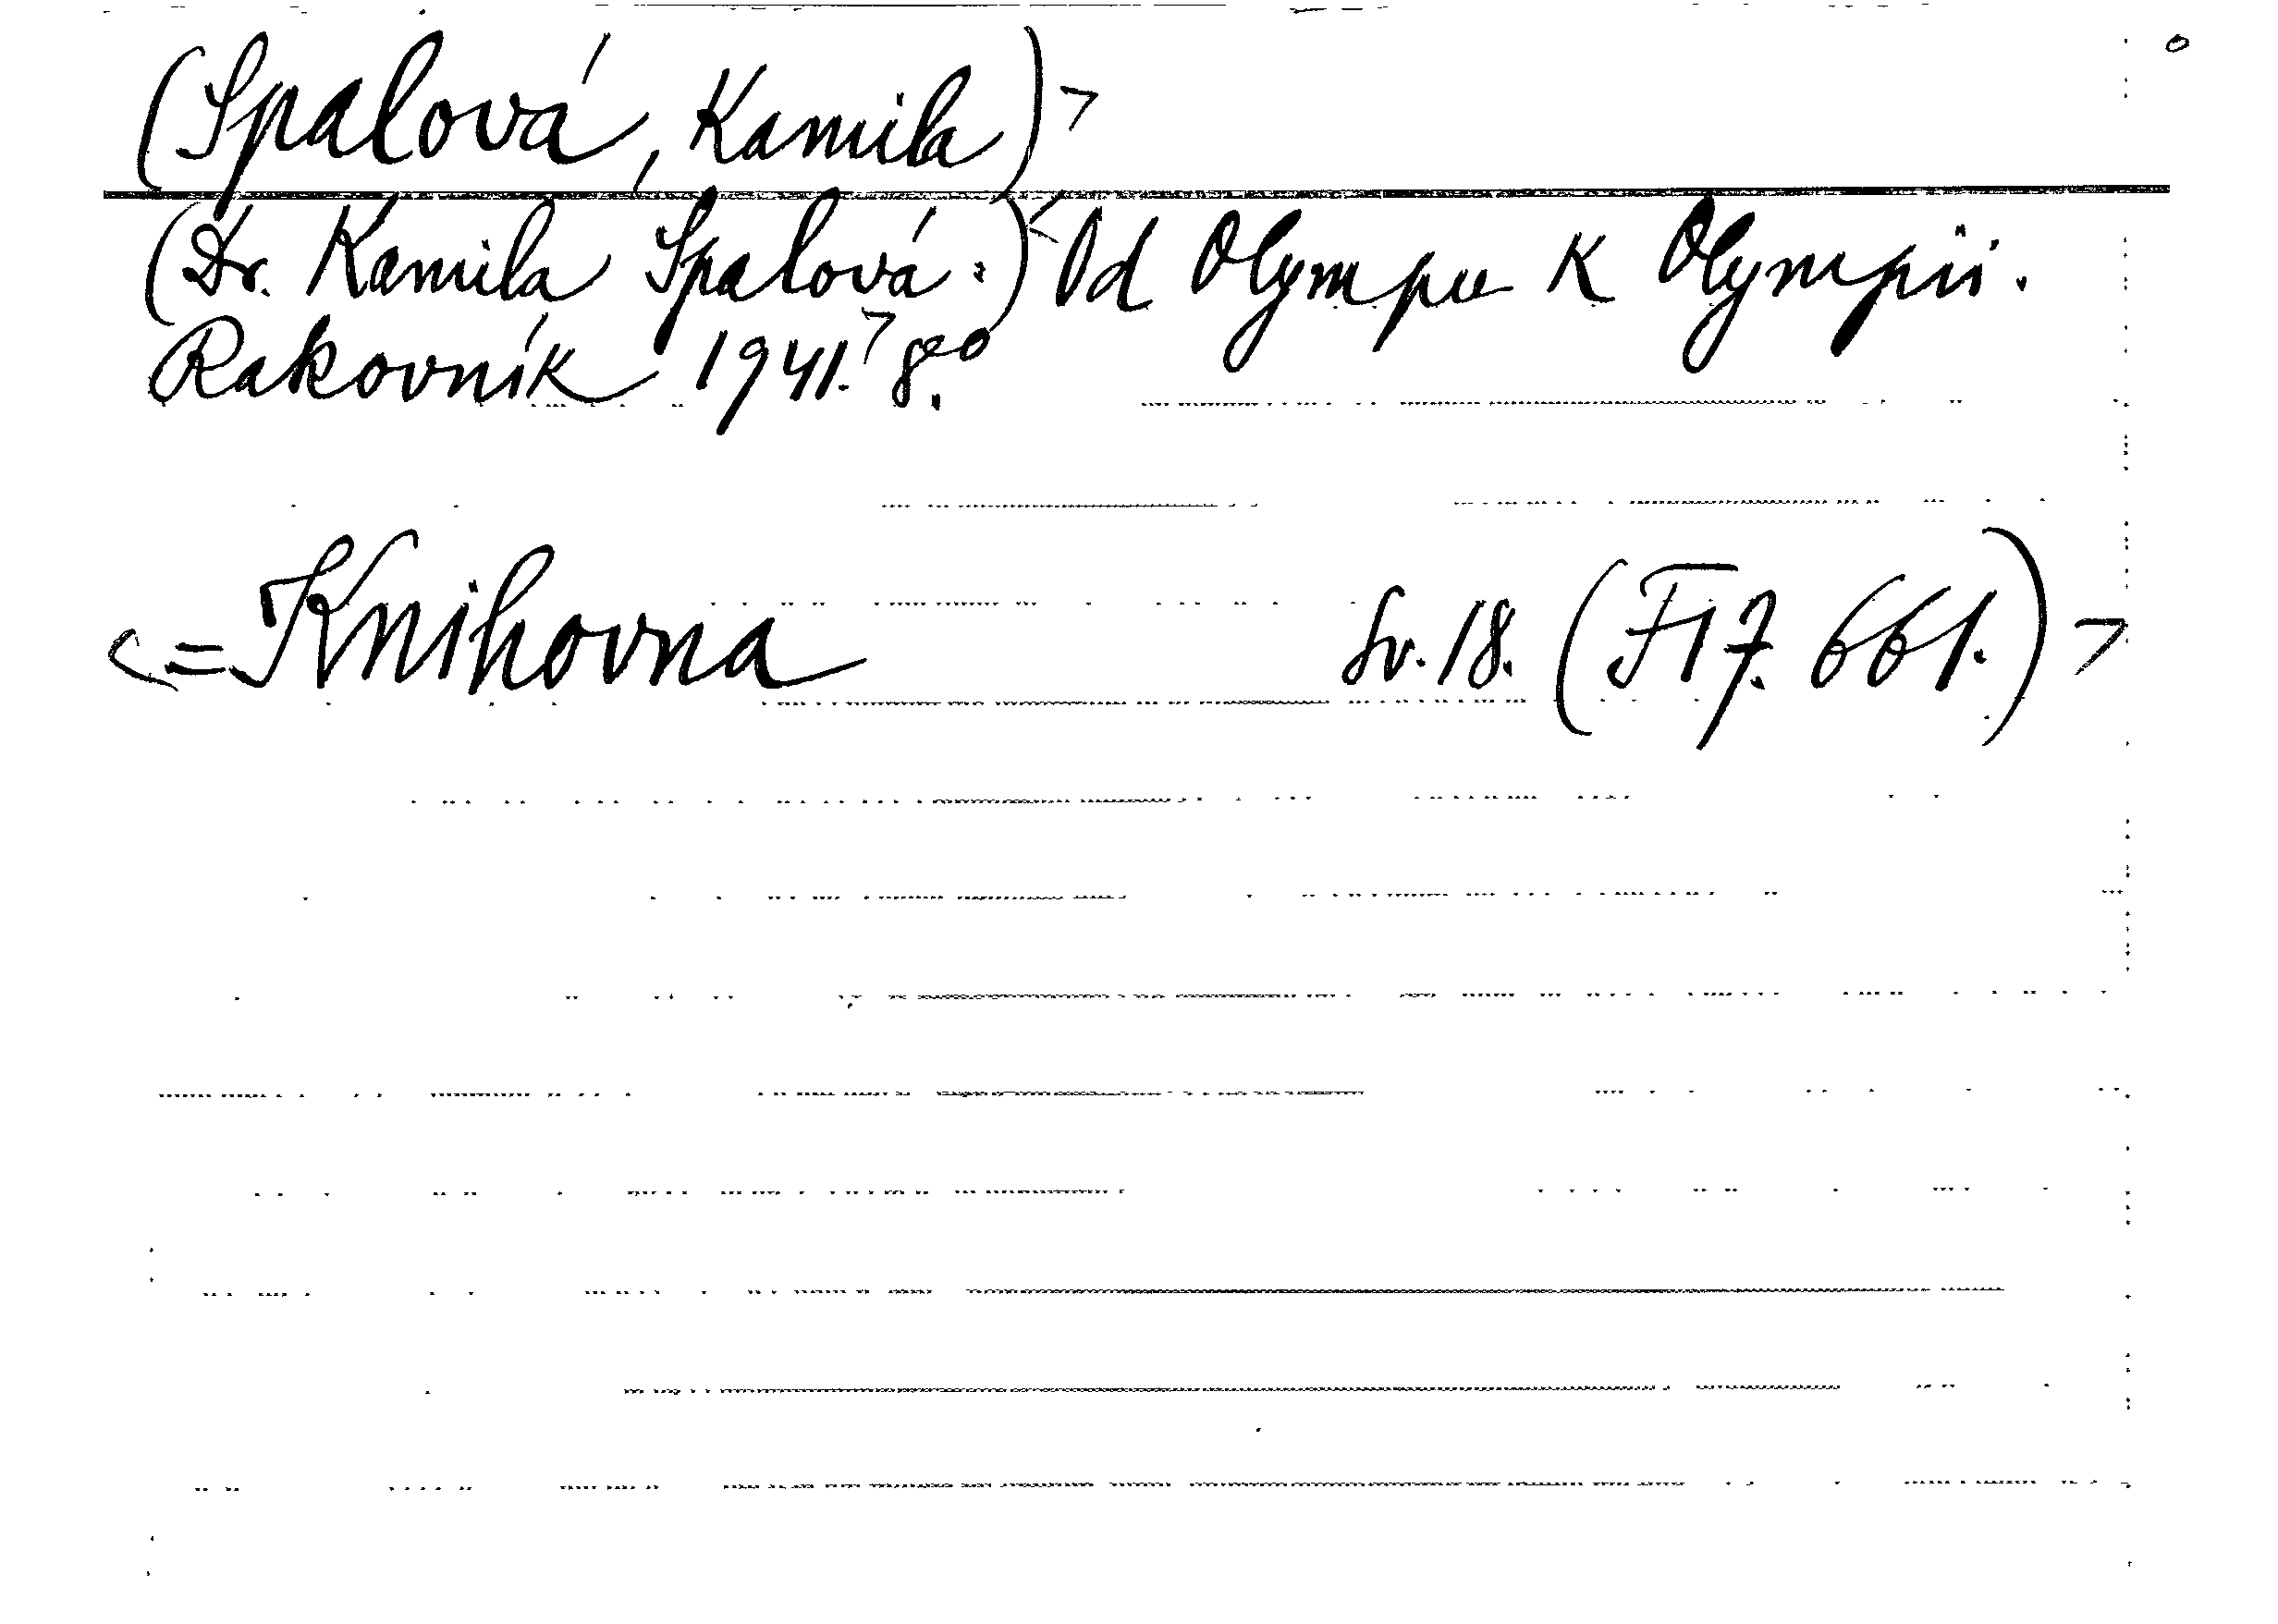 (Spalová, Kamila)>
(Dr. Kamila Spalová:)< Od Olympu k Olympii.
Rakovník 1941.> 8°.
<=Knihovna sv. 18. (F17. 661.)>